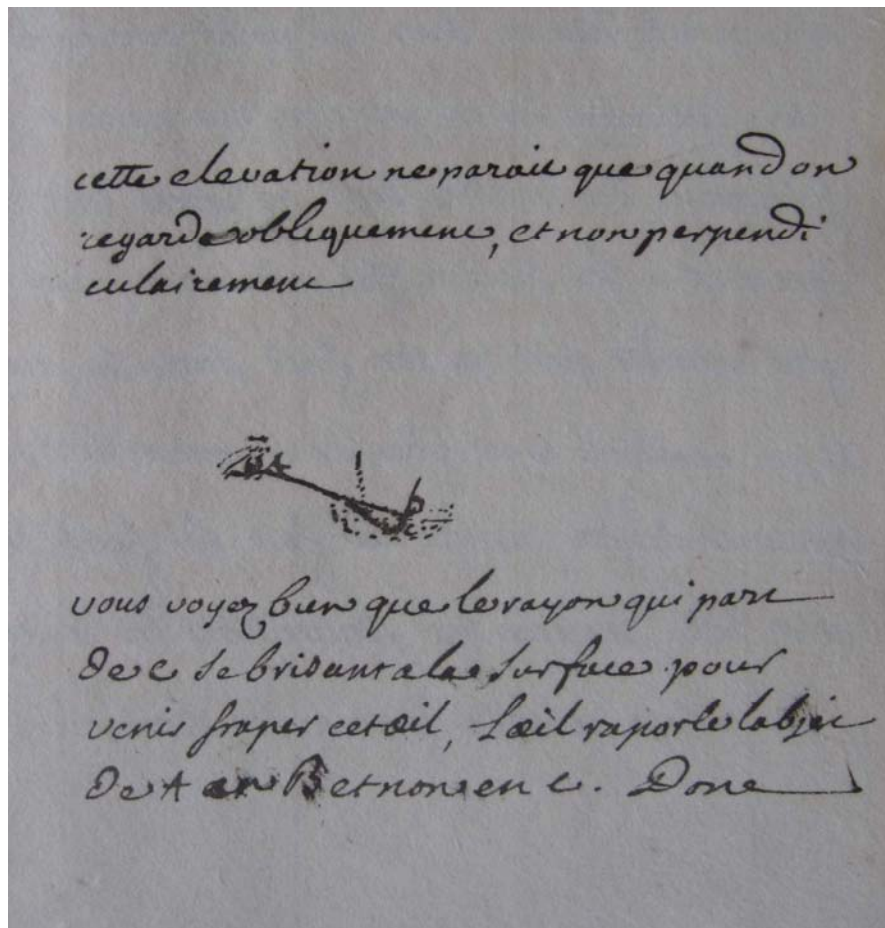 cette elevation ne parait que quand on
regarde obliquement, et non perpendi
culairement
A
B
C
vous voyez bien que le rayon qui part
de c se brisant a la surface pour
venir fraper cet œil, l'œil raporte l'objet
de A en B et non en c. Donc